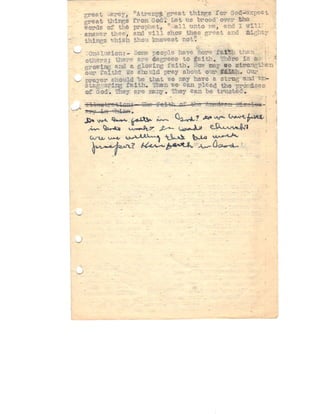 great Carey, "Attempt great things for God-expect
great things from God. Let us brood over the
words of the prophet, "Call unto me, and I will
answer thee, and will show thee great and mighty
things which thou knowest not."
Conclusion:- Some people have more faith than
others; there are degrees to faith. There is a
growing and a glowing faith. How may we strengthen
our faith? We should pray about our faith. Our
prayer should be that we may have a strong and un-
staggering faith. Then we can plead the promises
of God. They are many. They can be trusted.
Illustration:- The Faith of the
in China.
Do we have faith in God? Do we have faith
in God's work? In God's Church?
are we willing that His work
prosper? Have faith in God!